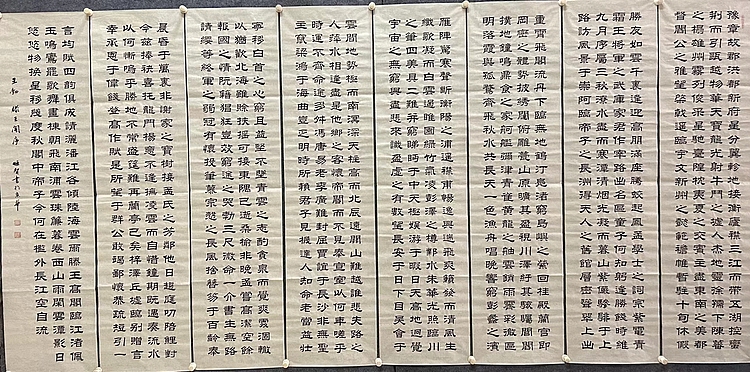 豫章故郡洪都新府星分翼軫地接衡廬襟三江而帶五湖控蠻
荊而引甌越物華天寶龍光射牛斗之墟人杰地靈徐孺下陳蕃
之榻雄州霧列俊采星馳臺隍枕夷夏之交賓主盡東南之美都
督閻公之雅望棨戟遙臨宇文新州之懿範襜帷暫駐十旬休假
勝友如雲千里逢迎高朋滿座騰蛟起鳳孟學士之詞宗紫電青
霜王將軍之武庫家君作宰路出名區童子何知躬逢勝餞時維
九月序屬三秋潦水盡而寒潭清煙光凝而暮山紫儼驂騑于上
路訪風景于崇阿臨帝子之長洲得天人之舊館層巒聳翠上出
重霄飛閣流丹下臨無地鶴汀鳧渚窮島嶼之縈回桂殿蘭宮即
岡巒之體勢披繡闥俯雕甍山原曠其盈視川澤紆其駭矚閭閻
撲地鐘鳴鼎食之家舸艦彌津青雀黃龍之舳雲銷雨霽彩徹區
明落霞與孤鶩齊飛秋水共長天一色漁舟唱晚響窮彭蠡之濱
雁陣驚寒聲斷衡陽之浦遙襟甫暢逸興遄飛爽籟發而清風生
纖歌凝而白雲遏睢園綠竹氣凌彭澤之樽鄴水朱華光照臨川
之筆四美具二難并窮睇眄于中天極娛游于暇日天高地迥覺
宇宙之無窮興盡悲來識盈虛之有數望長安于日下目吳會于
雲間地勢極而南溟深天柱高而北辰遠關山難越誰悲失路之
人萍水相逢盡是他鄉之客懷帝閽而不見奉宣室以何年嗟乎
時運不齊命途多舛馮唐易老李廣難封屈賈誼于長沙非無聖
主竄梁鴻于海曲豈乏明時所賴君子見機達人知命老當益壯
寧移白首之心窮且益堅不墜青雲之志酌貪泉而覺爽處涸轍
以猶歡北海雖賒扶搖可接東隅已逝桑榆非晚孟嘗高潔空餘
報國之情阮籍猖狂豈效窮途之哭勃三尺微命一介書生無路
請纓等終軍之弱冠有懷投筆慕宗愨之長風捨簪笏于百齡奉
晨昏于萬里非謝家之寶樹接孟氏之芳鄰他日趨庭叨陪鯉對
今茲捧袂喜托龍門楊意不逢撫凌雲而自惜鍾期既遇奏流水
以何慚嗚乎勝地不常盛筵難再蘭亭已矣梓澤丘墟臨別贈言
幸承恩于偉餞登高作賦是所望于群公敢竭鄙懷恭疏短引一
言均賦四韻俱成請灑潘江各傾陸海雲爾滕王高閣臨江渚佩
玉鳴鸞罷歌舞畫棟朝飛南浦雲珠簾暮卷西山雨閑雲潭影日
悠悠物換星移幾度秋閣中帝子今何在檻外長江空自流
王勃 滕王閣序